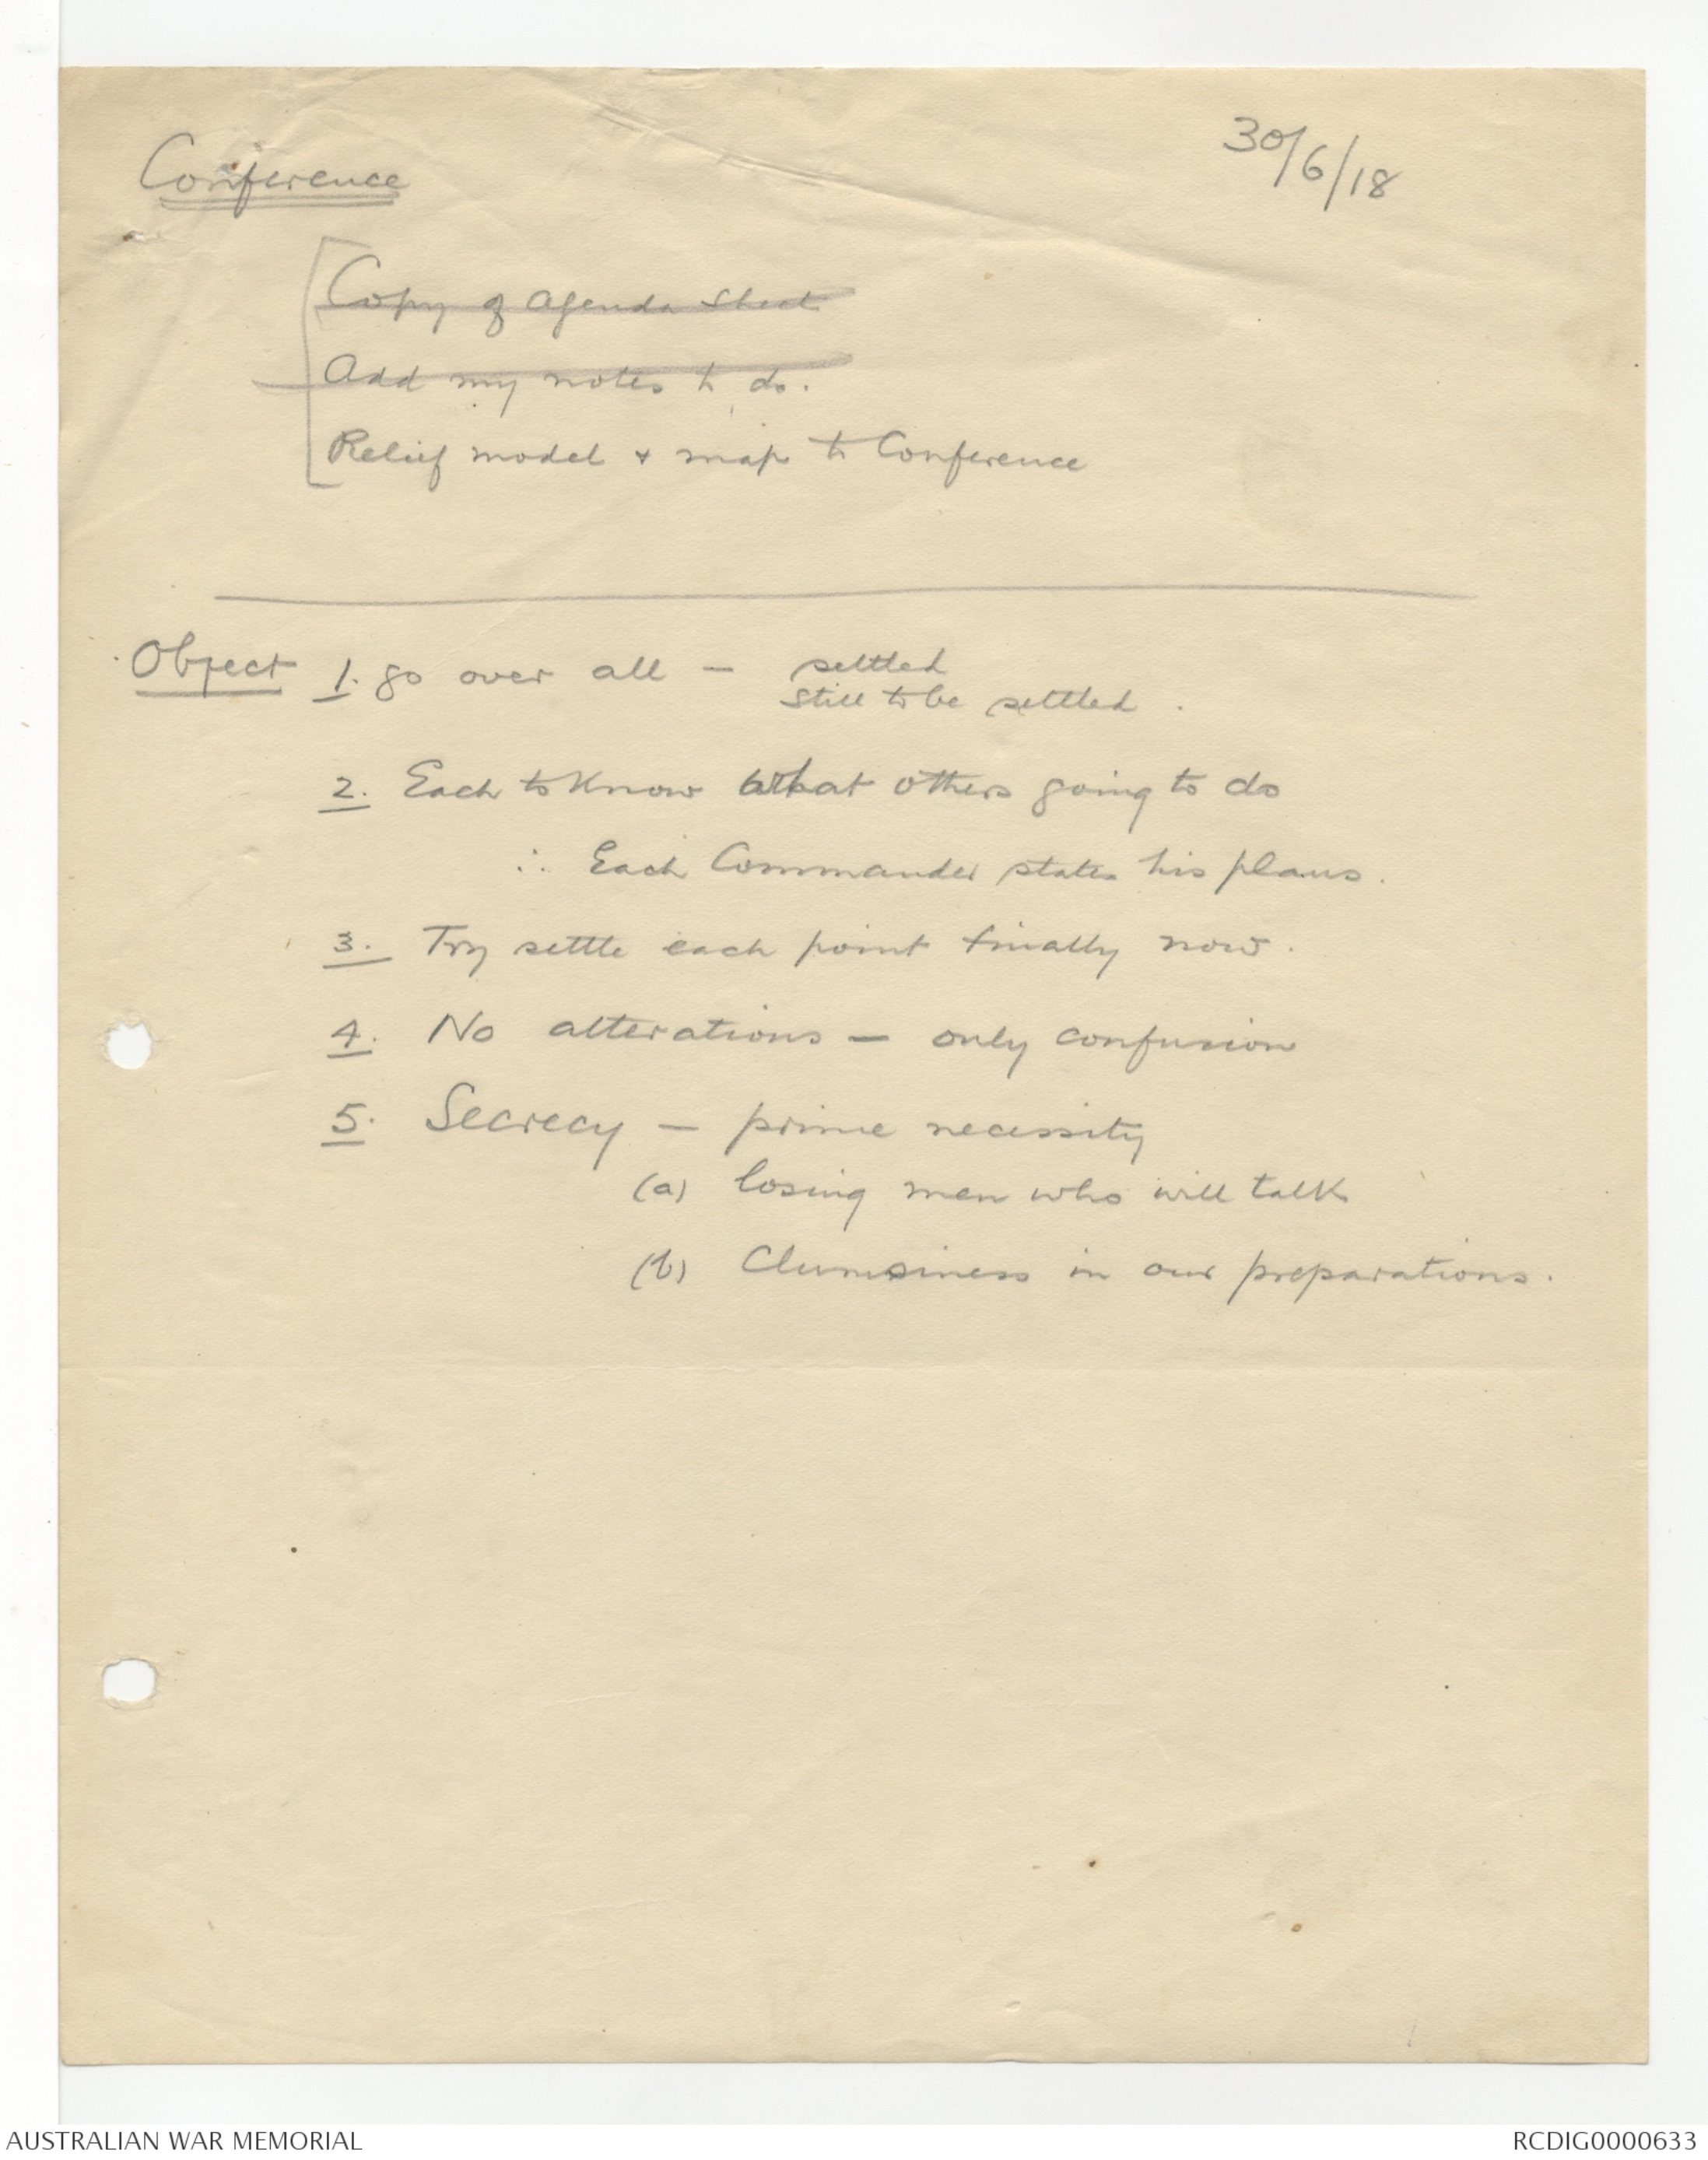 30/6/18
Conference
Copy of Agenda Sheet
Add my notes to do.
Relief model + map to Conference
Object 1. go over all — settled
still to be settled.
2. Each to know what others going to do
∴ Each Commander states his plans.
3. Try settle each point finally now.
4. No alterations — only confusion
5. Secrecy — prime necessity
(a) losing men who will talk
(b) Clumsiness in our preparations.
AUSTRALIAN WAR MEMORIAL
RCDIG0000633